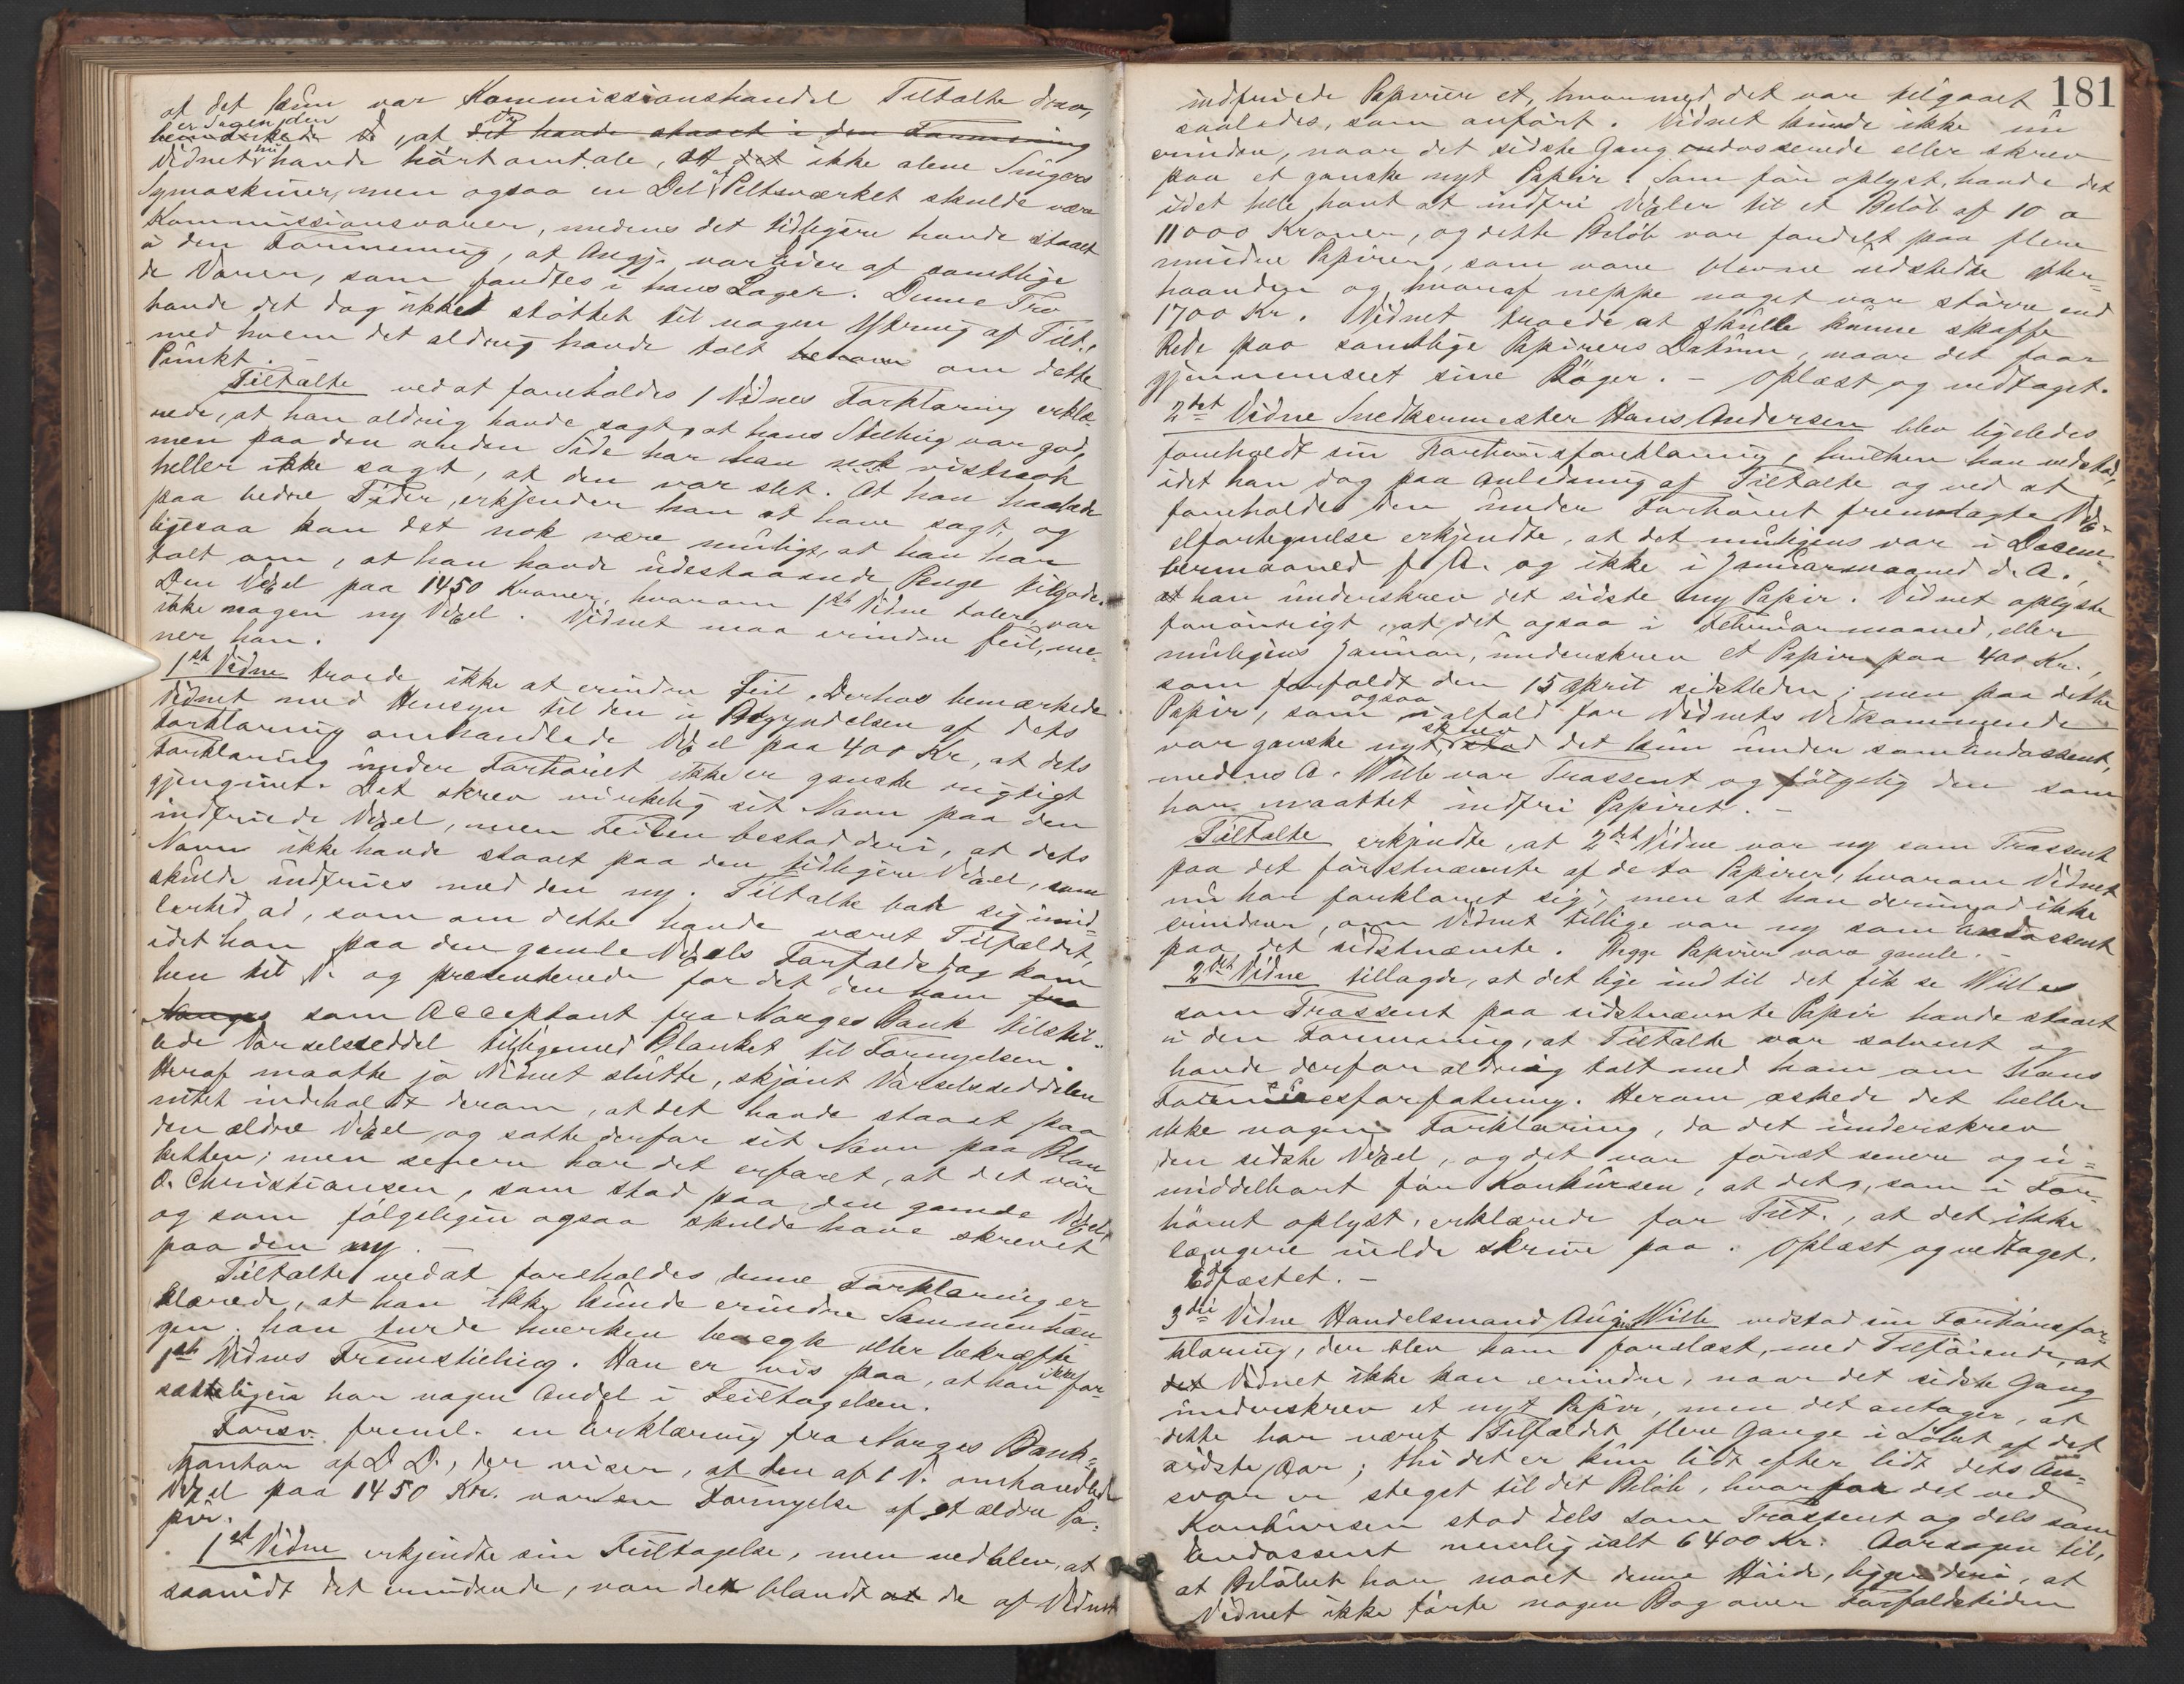 at det kun var Kommissionshandel Tiltalte drev,
er Sagen den
at det havde staaet i den Formening
Vidnet nu havde hørt omtale, at det ikke alene Singers
Symaskiner, men ogsaa en Del af Peltsværket skulde være
Kommissionsvarer, medens det tidligere havde staaet
i den Formening, at Angj. var Eier af samtlige
de Varer, som fandtes i hans Lager. Denne Tro
havde det dog ikke støttet til nogen Ytring af Tilt.,
med hvem det aldrig havde talt om dette
Punkt. –
Tiltalte ved at foreholdes 1 Vidnes Forklaring erklæ-
rede, at han aldrig havde sagt, at hans Stilling var god,
men paa den anden Side har han nok vistnok
heller ikke sagt, at den var slet. At han haabede
paa bedre Tider, erkjender han at have sagt, og
ligesaa kan det nok være muligt, at han har
talt om, at han havde udestaaende Penge tilgode.
Den Vexel paa 1450 Kroner, hvorom 1ste Vidne taler, var
ikke nogen ny Vexel. Vidnet maa erindre feil, me-
ner han.
1ste Vidne troede ikke at erindre feil. Derhos bemærkede
Vidnet med Hensyn til den i Begyndelsen af dets
Forklaring omhandlede Vexel paa 400 Kr, at dets
Forklaring under Forhøret ikke er ganske rigtigt
gjengivet. Det skrev virkelig sit Navn paa den
indfriede Vexel, men Feilen bestod deri, at dets
Navn ikke havde staaet paa den tidligere Vexel, som
skulde indfries med den ny. Tiltalte bar sig imid-
lertid ad, som om dette havde været Tilfældet,
idet han paa den gamle Vexels Forfaldsdag kom
hen til V. og præsenterede for det den ham fra
Norges som Acceptant fra Norges Bank tilstil-
lede Varselsseddel tilligemed Blanket til Fornyelsen.
Heraf maatte jo Vidnet slutte, skjønt Varselsseddelen
intet indeholdt derom, at det havde staaet paa
den ældre Vexel og satte derfor sit Navn paa Blan
ketten; men senere har det erfaret, at det var
O. Christiansen, som stod paa den gamle Vexel,
og som følgeligen ogsaa skulde have skrevet
paa den ny. –
Tiltalte ved at foreholdes denne Forklaring er
klærede, at han ikke kunde erindre Sammenhæn
gen; han turde hverken benegte eller bekræfte
1ste Vidnes Fremstilling. Han er vis paa, at han ikke for-
sætteligen har nogen Andel i Feiltagelsen.
Forsv. freml. en Erklæring fra Norges Bank-
kontor af D. D., der viser, at den af 1 V. omhandlede
Vexel paa 1450 Kr. var en Fornyelse af et ældre Pa-
pir.
1ste Vidne erkjendte sin Feiltagelse, men vedblev, at
saavidt det erindrede, var det blandt at de af Vidnet
181
indfriede Papirer et, hvormed det var tilgaaet
saaledes, som anført. Vidnet kunde ikke nu
erindre, naar det sidste Gang endosserede eller skrev
paa et ganske nyt Papir. Som før oplyst, havde det
idet hele havt at indfri Vexler til et Beløb af 10 a
11000 Kroner, og dette Beløb var fordelt paa flere
mindre Papirer, som vare blevne udstedte efter-
haanden og hvoraf neppe noget var større end
1700 Kr. Vidnet troede at skulle kunne skaffe
Rede paa samtlige Papirers Datum, naar det faar
gjennemseet sine Bøger. – Oplæst og vedtaget.
2det Vidne Snedkermester Hans Andersen blev ligeledes
foreholdt sin Forhørsforklaring, hvilken han vedstod,
idet han dog paa Anledning af Tiltalte og ved at
foreholdes den under Forhøret fremlagte Vex-
elfortegnelse erkjendte, at det muligens var i Decem-
bermaaned f. A. og ikke i Januarmaaned d. A.,
at han underskrev det sidste ny Papir. Vidnet oplyste
forøvrigt, at det ogsaa i Februarmaaned, eller
muligens Januar, underskrev et Papir paa 400 Kr.,
som forfaldt den 15 April sidstleden; men paa dette
Papir, som ogsaa ialfald for Vidnets Vedkommende
var ganske nyt, skrev det kun under som Endossent,
medens A. Wille var Trassent og følgelig den som
har maattet indfri Papiret. –
Tiltalte erkjendte, at 2det Vidne var ny som Trassent
paa det førstnævnte af de to Papirer, hvorom Vidnet
nu har forklaret sig, men at han derimod ikke
erindrer, om Vidnet tillige var ny som Endossent
paa det sidstnævnte. Begge Papirer vare gamle. –
2det Vidne tillagde, at det lige indtil det fik se Willes
som Trassent paa sidstnævnte Papir havde staaet
i den Formening, at Tiltalte var solvent og
havde derfor aldrig talt med ham om Hans
Formuesforfatning. Herom æskede det heller
ikke nogen Forklaring, da det underskrev
den sidste Vexel, og det var først senere og u-
middelbart før Konkursen, at det, som i For-
høret oplyst, erklærede for Tilt., at det ikke
længere vilde skrive paa. Oplæst og vedtaget.
Edfæstet. –
3die Vidne Handelsmand Aug. Wille vedstod sin Forhørsfor-
klaring, der blev ham forelæst, med Tilføiende, at
det Vidnet ikke kan erindre, naar det sidste Gang
underskrev et nyt Papir, men det antager, at
dette har været Tilfældet flere Gange i Løbet af det
sidste Aar; thi det er kun lidt efter lidt dets An-
svar er steget til det Beløb, hvorfor det ved
Konkursen stod dels som Trassent og dels som
Endossent nemlig ialt 6400 Kr. Aarsagen til,
at Beløbet har naaet denne Høide, ligger deri, at
Vidnet ikke førte nogen Bog over Forfaldstiden